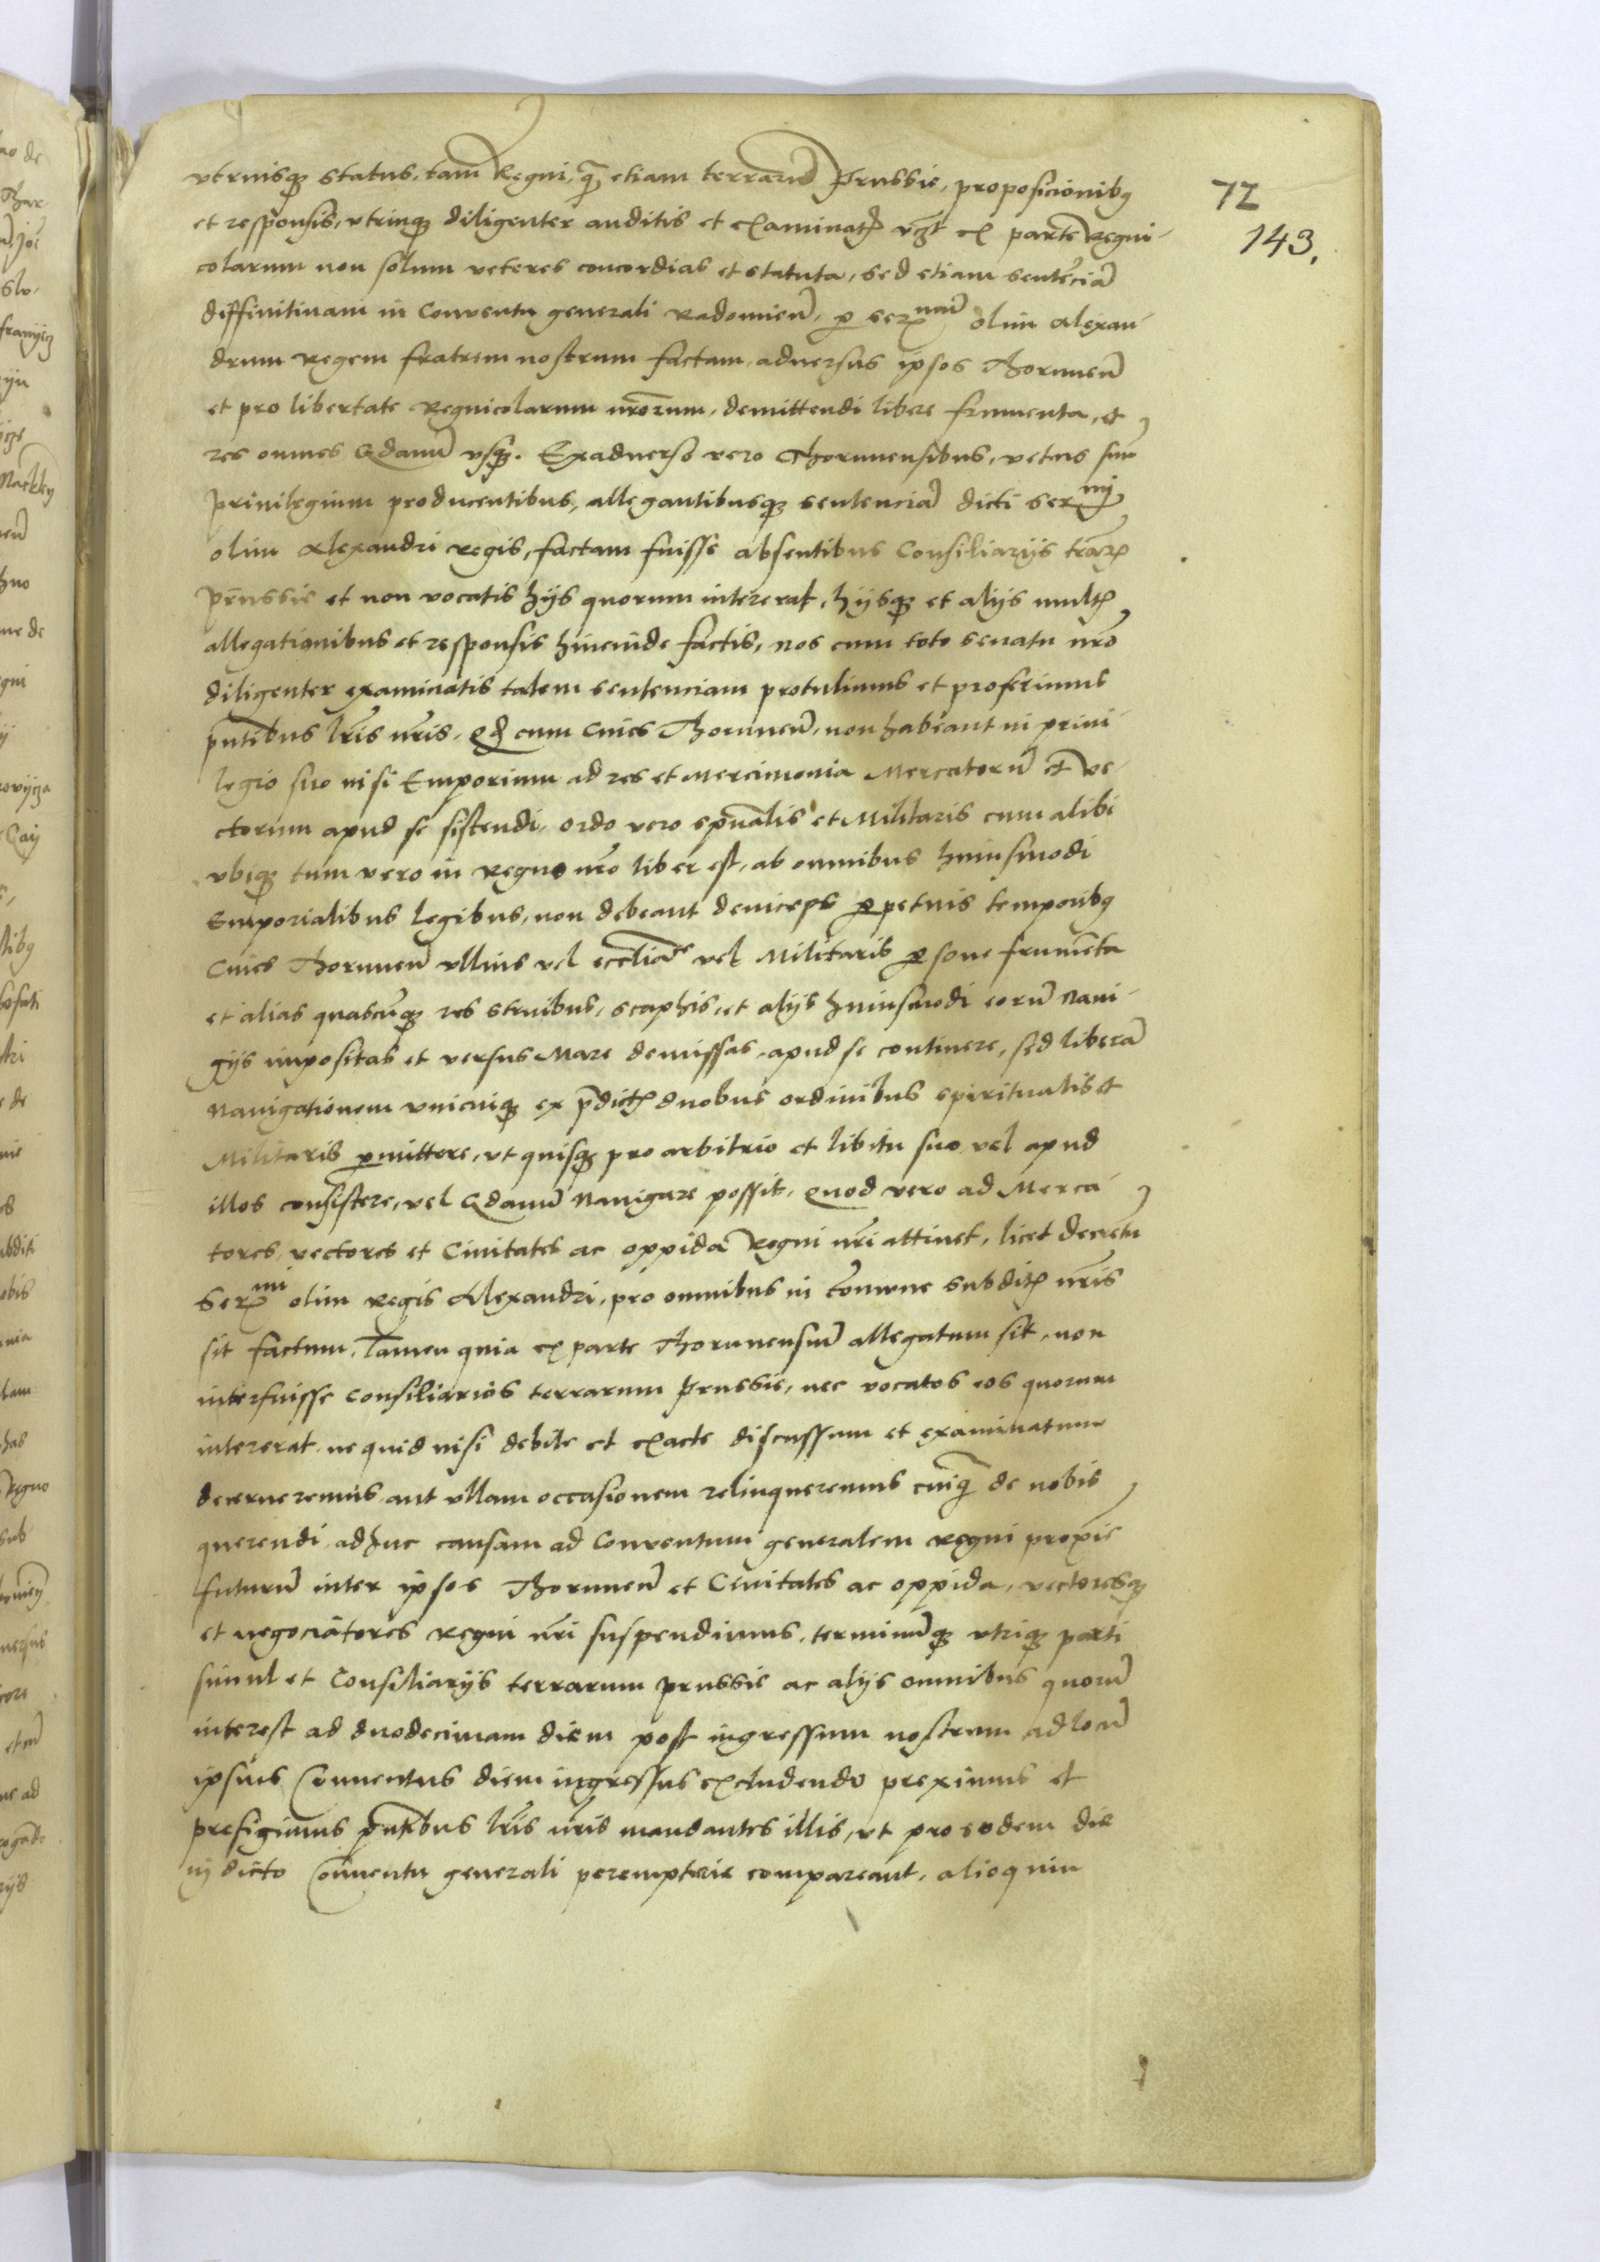 vtriusq; status, tam Regni, q̃ etiam terrarum Prussie, proposicionibq
72
et responsis, vtrinq; diligenter auditis et examinatis vz̃ ex parte Regni-
143.
colarum non solum veteres concordias et statuta, sed etiam sentẽciã
diffinitiuam in Conventu generali Radomieñ, p Serᵐᵘᵐ olim Alexan-
drum Regem fratrem nostrum factam, aduersus ipsos Thoruneñ
et pro libertate Regnicolarum nr̃orum, demittendi libere frumenta, et
res omnes Gdanũ vsq;. Exaduerso vero Thorunensibus, vetus suũ
priuilegium producentibus, allegantibusq; sentenciã dicti Serᵐⁱ
olim Alexandri Regis, factam fuisse absentibus Consiliarijs trãrꝫ
Prussie et non vocatis hijs quorum intererat, hijsq; et alijs multꝫ
allegationibus et responsis hincinde factis, nos cum toto senatu nr̃o
diligenter examinatis talem sentenciam protulimus et proferimus
pñtibus lr̃is nr̃is, qđ cum Ciues Thoruneñ, non habeant in priui-
legio suo nisi Emporium ad res et Mercimonia Mercatorũ et ve-
ctorum apud se sistendi, ordo vero spũalis et Militaris cum alibi
vbiq; tum vero in Regno nr̃o liber est, ab omnibus huiusmodi
Emporialibus legibus, non debeant deinceps ppetuis temporibq
Ciues Thoruneñ ullius vel eccl̃iãe vel Militaris psone frumẽta
et alias quascũq; res struibus, scaphis, et alijs huiusmodi eorũ Naui-
gijs impositas et versus Mare demissas, apud se continere, sed liberã
Nauigationem vnicuiq; ex p̃dictꝫ duobus ordinibus spiritualis et
Militaris pmittere, vt quisq; pro arbitrio et libitu suo vel apud
illos consistere, vel Gdanũ Nauigare possit, Quod vero ad Merca-
tores, vectores et Ciuitates ac oppida Regni nr̃i attinet, licet decretũ
Serᵐⁱ olim Regis Alexandri, pro omnibus in cõmune subditꝫ nr̃is
sit factum, Tamen quia ex parte Thorunensiũ allegatum sit, non
interfuisse Consiliarios terrarum Prussie, nec vocatos eos quorum
intererat, ne quid nisi debite et exacte discussum et examinatum
decerneremus aut ullam occasionem relinqueremus cuiq̃ de nobis
querendi, adhuc causam ad Conventum generalem Regni proxie
futurũ inter ipsos Thoruneñ et Ciuitates ac oppida, vectoresq;
et negociatores Regni nr̃i suspendimus, terminũq; vtriq; parti
simul et Consiliarijs terrarum Prussie ac alijs omnibus quorũ
interest ad duodecimam diem post ingressum nostrum ad locũ
ipsius Conuentus diem ingressus excludendo preximus et
prefigimus pñtibus lr̃is nr̃is mandantes illis, vt pro eodem die
in dicto Conuentu generali peremptorie compareant, alioquin